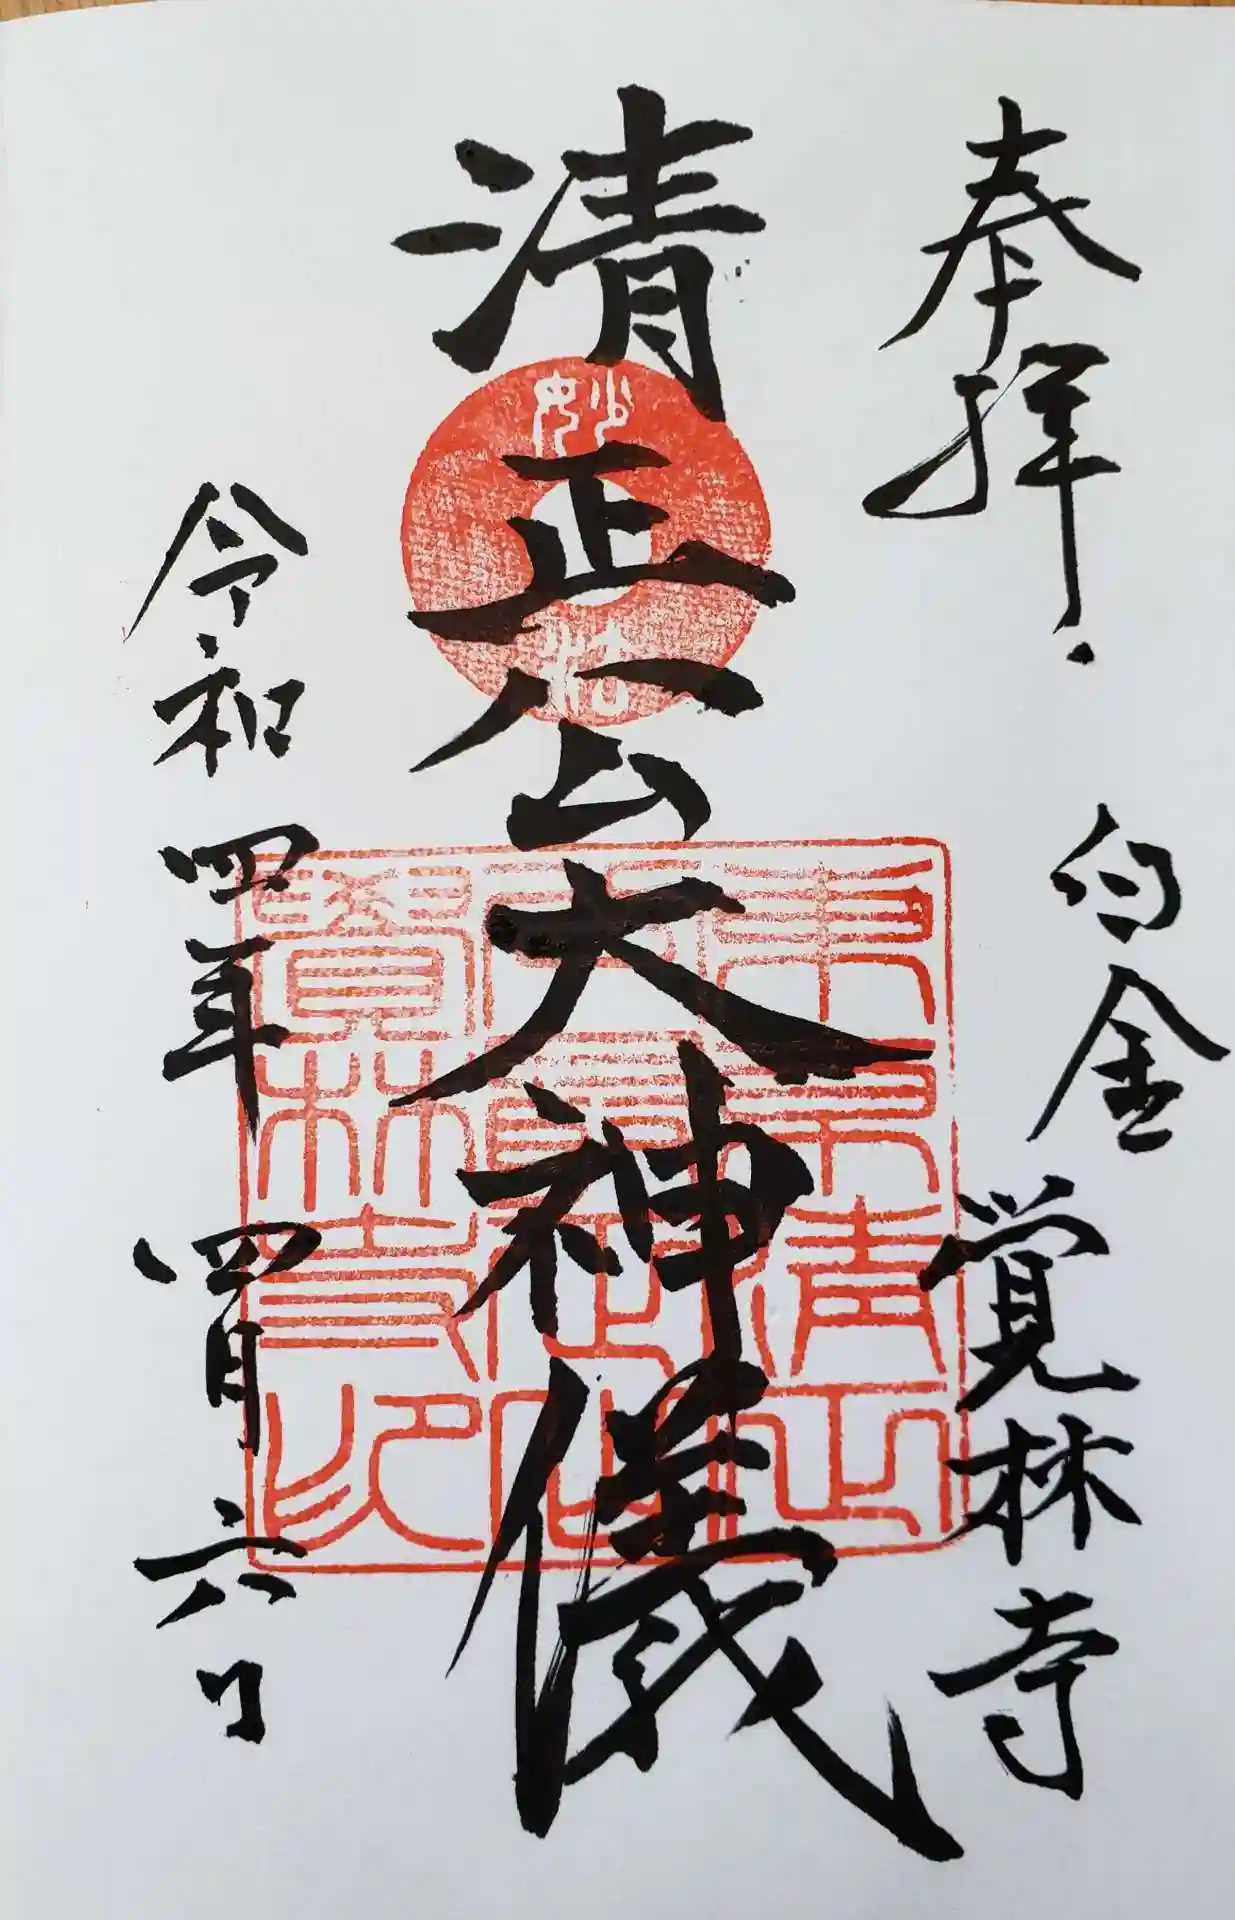 奉拝
白金 覚林寺
清正公大神儀
令和四年四月六日
妙法